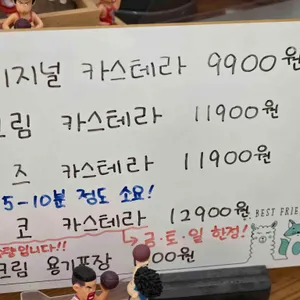 리지널 카스테라 9900원
크림 카스테라 11900원
즈 카스테라 11900원
5-10분 정도 소요!
코 카스테라 12900원
입니다!! → 금·토·일 한정!
크림 용기포장 00원
BEST FRIE